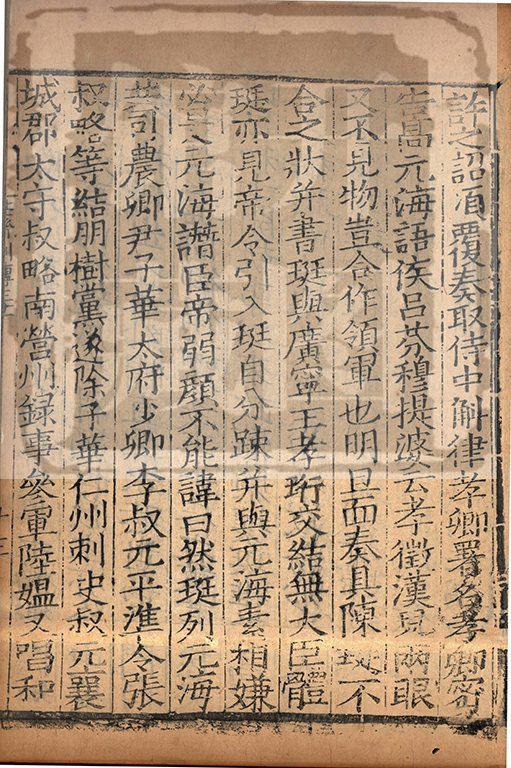 許之詔須覆奏取侍中斛律孝卿署名孝卿密
告高元海語侯呂芬穆提婆云孝徵漢兒兩眼
又不見物豈合作領軍也明旦面奏具陳珽不
合之狀并書珽與廣寧王孝珩交結無大臣體
珽亦見帝令引入珽自分踈并與元海素相嫌
元海譖臣帝弱顏不能諱曰然珽列元海
司農卿尹子華太府少卿李叔元平準令張
叔略等結朋樹黨遂除子華仁州刺史叔元襄
城郡太守叔略南營州録事叅軍陸媼又唱和